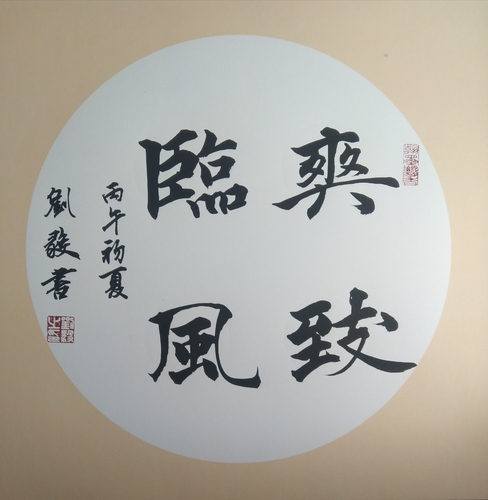 爽致
臨風
丙午初夏
劉發書